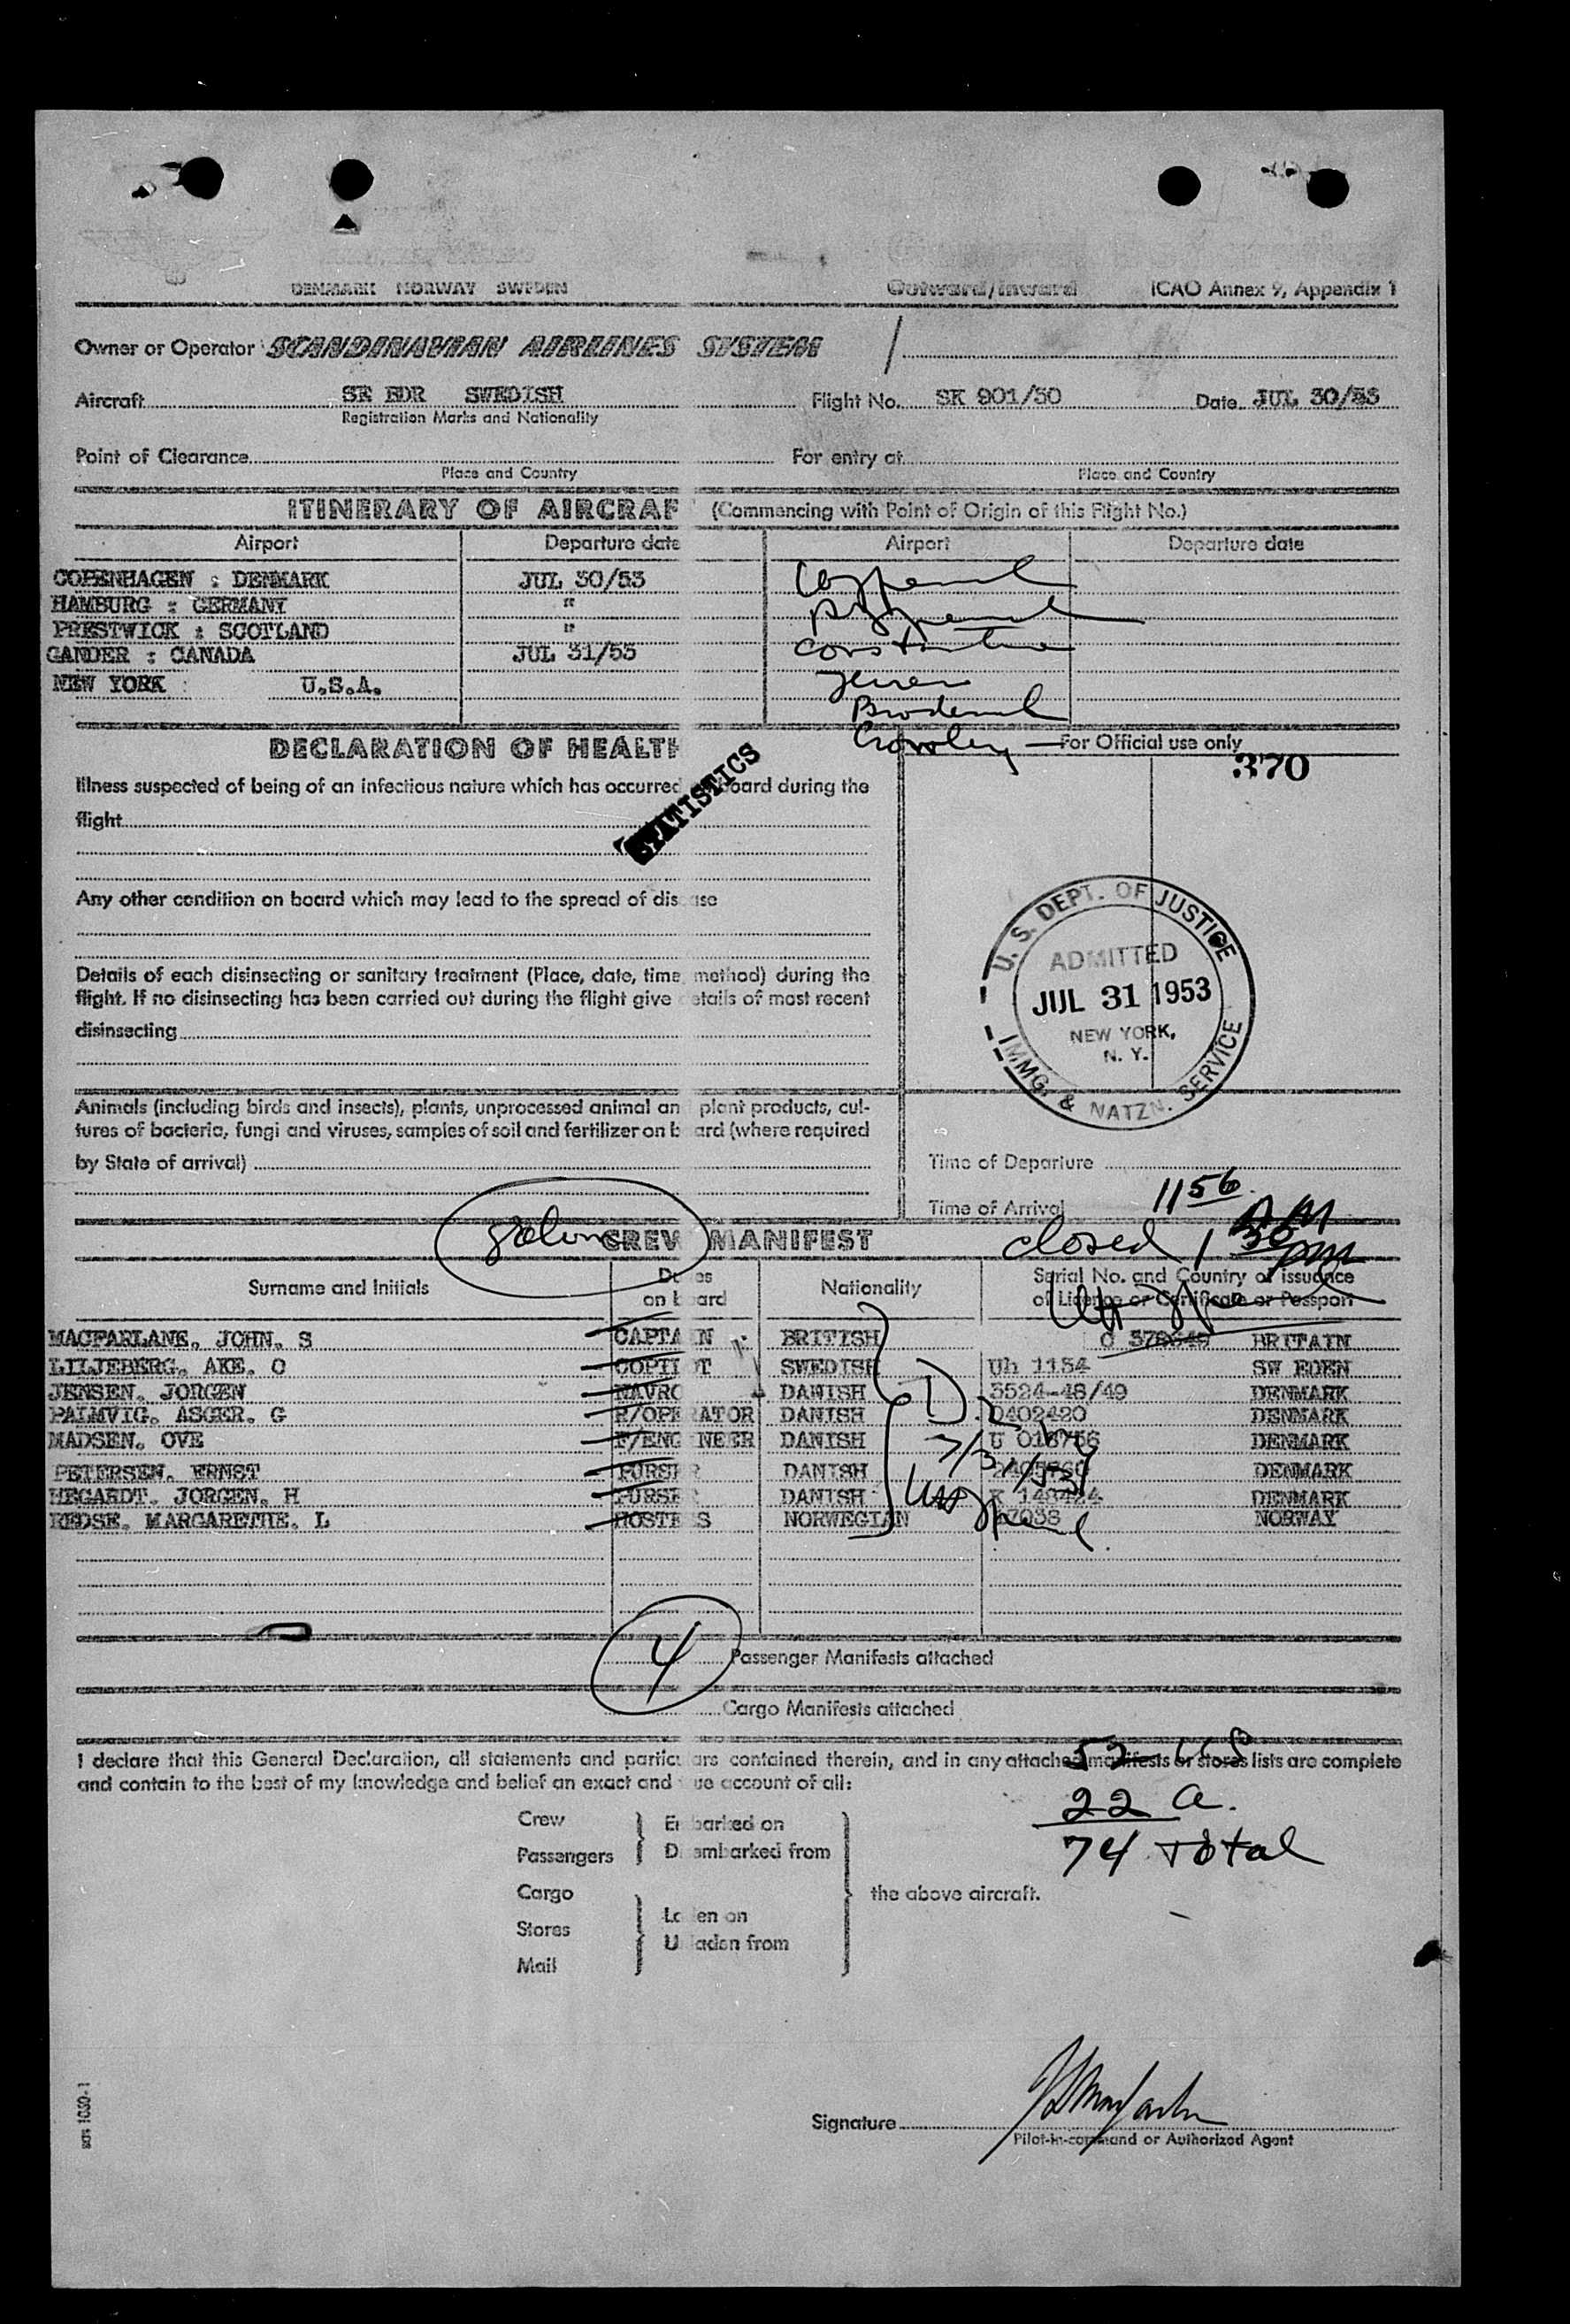 DENMARK NORWAY SWEDEN Outward/Inward ICAO Annex 9, Appendix 1
Owner or Operator SCANDINAVIAN AIRLINES SYSTEM
Aircraft SE BDR SWEDISH Flight No. SK 901/30 Date JUL 30/53
Registration Marks and Nationality
Point of Clearance For entry at
Place and Country Place and Country
ITINERARY OF AIRCRAF (Commencing with Point of Origin of this Flight No.)
Airport Departure date Airport Departure date
COPENHAGEN : DENMARK JUL 30/53
HAMBURG : GERMANY "
PRESTWICK : SCOTLAND "
GANDER : CANADA JUL 31/53
NEW YORK : U.S.A.
Broderick
Crowley
DECLARATION OF HEALTH For Official use only
370
STATISTICS
Illness suspected of being of an infectious nature which has occurred board during the
flight
Any other condition on board which may lead to the spread of disease
Details of each disinsecting or sanitary treatment (Place, date, time, method) during the
flight. If no disinsecting has been carried out during the flight give details of most recent
disinsecting
U. S. DEPT. OF JUSTICE
ADMITTED
JUL 31 1953
NEW YORK,
N. Y.
IMMG. & NATZN. SERVICE
Animals (including birds and insects), plants, unprocessed animal an plant products, cul-
tures of bacteria, fungi and viruses, samples of soil and fertilizer on board (where required
by State of arrival)
Time of Departure
Time of Arrival 11 56 AM
closed 1 30 pm
CREW MANIFEST
Surname and Initials Duties on board Nationality Serial No. and Country of issuance
of Licence or Certificate or Passport
MACFARLANE, JOHN. S CAPTAIN BRITISH BRITAIN
LILJEBERG, AKE. O COPILOT SWEDISH Uh 1154 SWEDEN
JENSEN, JORGEN NAVRO DANISH 3524-48/49 DENMARK
PALMVIG, ASGER. G R/OPERATOR DANISH 0402420 DENMARK
MADSEN, OVE F/ENGINEER DANISH DENMARK
PETERSEN, ERNST PURSER DANISH DENMARK
HEGARDT, JORGEN. H PURSER DANISH DENMARK
REDSE, MARGARETHE. L HOSTESS NORWEGIAN NORWAY
4 Passenger Manifests attached
Cargo Manifests attached
I declare that this General Declaration, all statements and particulars contained therein, and in any attached manifests or stores lists are complete
and contain to the best of my knowledge and belief an exact and true account of all:
52 US
22 a.
74 total
Crew Embarked on
Passengers Disembarked from
Cargo the above aircraft.
Stores Laden on
Unladen from
Mail
Signature
Pilot-in-command or Authorized Agent